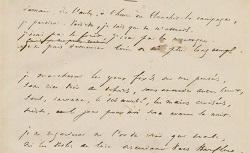 Demain, dès l'aube, à l'heure où blanchit la campagne,
je partirai. Vois-tu, je sais que tu m'attends.
j'irai par la forêt, j'irai par la montagne.
je ne puis demeurer loin de toi plus longtemps.
je marcherai les yeux fixés sur mes pensées,
sans rien voir au dehors, sans entendre aucun bruit,
seul, inconnu, le dos courbé, les mains croisées,
triste, et le jour pour moi sera comme la nuit.
je ne regarderai ni l'or du soir qui tombe,
ni les voiles au loin descendant vers Harfleur,